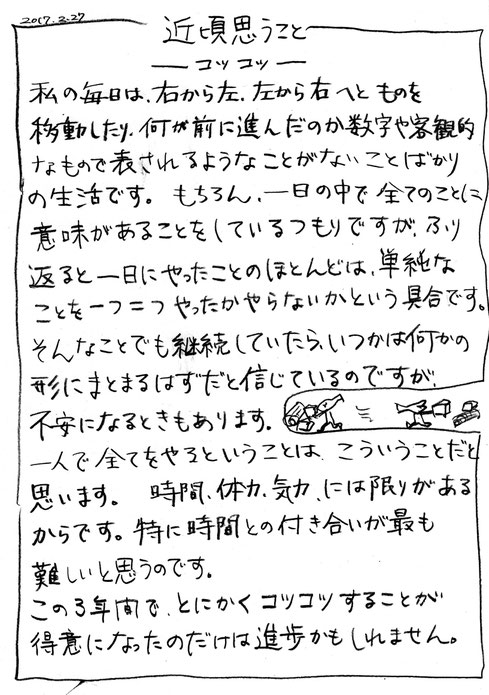 2017.2.27
近頃思うこと
―コツコツ―
私の毎日は、右から左、左から右へと ものを
移動したり、何が前に進んだのか数字や客観的
なもので表されるようなことがない ことばかり
の生活です。 もちろん、一日の中で 全てのことに
意味があることをしているつもりですが、ふり
返ると一日にやったことのほとんどは、単純な
ことを一つ二つ やったかやらないかという具合です。
そんなことでも継続していたら、いつかは何かの
形にまとまるはずだと信じているのですが、
不安になるときもあります。
一人で全てをやるということは、こういうことだと
思います。 時間、体力、気力、には限りがある
からです。特に時間との付き合いが最も
難しいと思うのです。
この3年間で、とにかくコツコツすることが
得意になったのだけは進歩かもしれません。